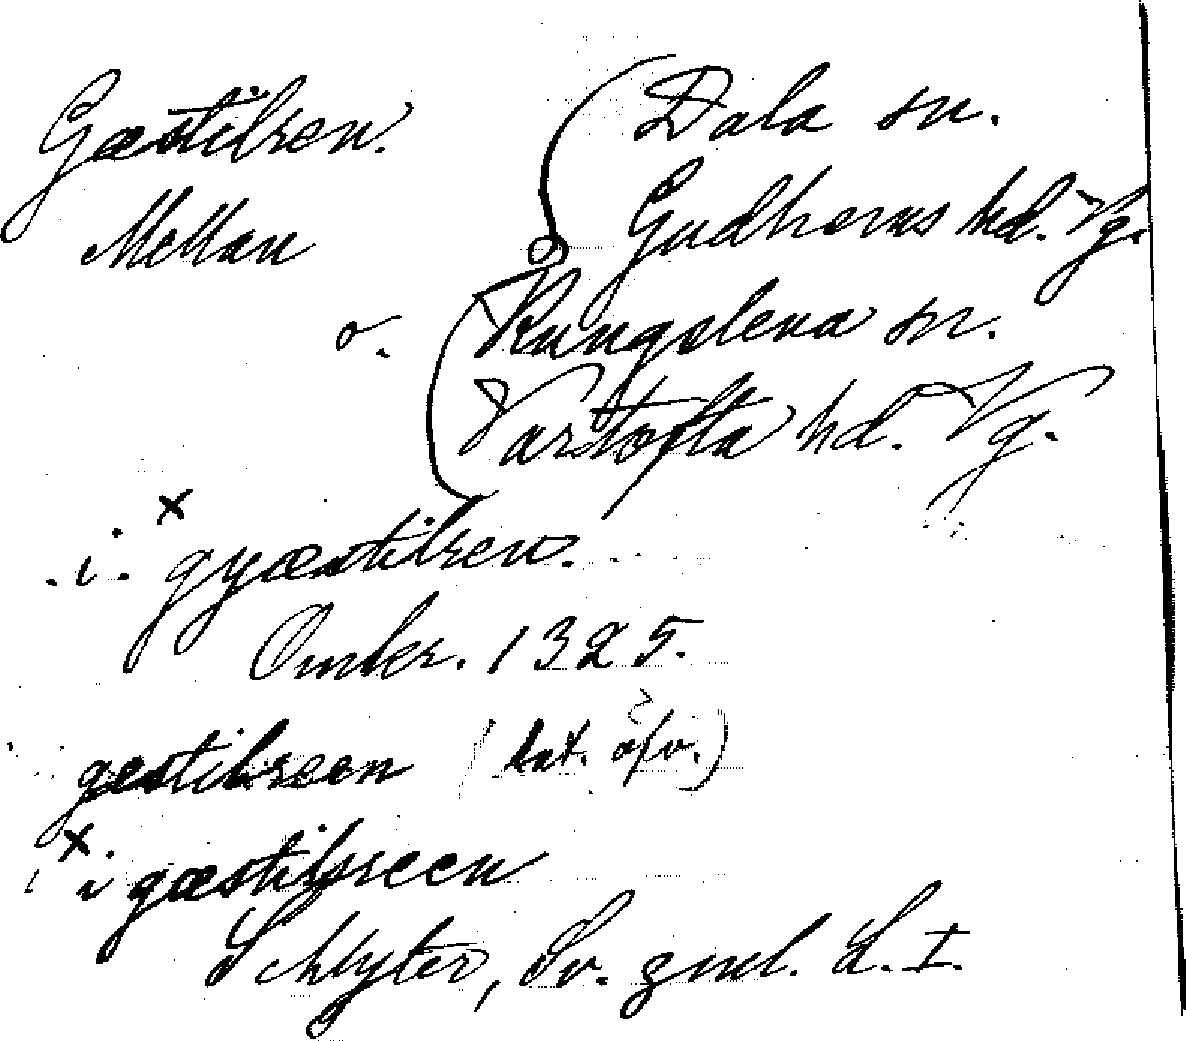 Gæstilren. Dala sn.
Mellan Gudhems hd. Vg.
o. Kungslena sn.
Vartofta hd. Vg.
. i. gyæstilren.
Omkr. 1325.
gestilreen (lat. öfv.)
i gæstilsreen
Schlyter, Sv. gml. L. I.